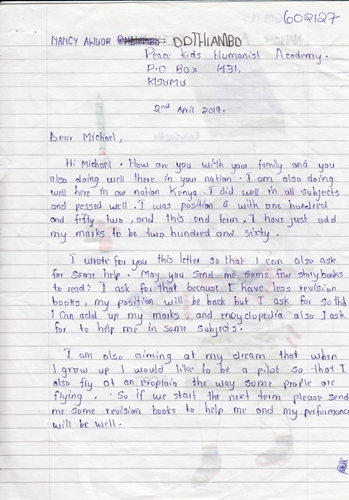 602127
NANCY AWUOR ODTHIAMBO
Peace Kids Humanist Academy.
P.O Box 1431.
KISUMU
2nd April 2019.
Dear Michael,
Hi Michael. How are you with your family and you
also doing well there in your nation. I am also doing
well here in our nation Kenya. I did well in all subjects
and passed well. I was position 6 with one hundred
and fifty two, and this end term, I have just add
my marks to be two hundred and sixty.
I wrote for you this letter so that I can also ask
for some help. May you send me some few storybooks
to read? I ask for that because I have less revision
books, my position will be back but I ask for so that
I can add up my marks and encyclopedia also I ask
for to help me in some subjects.
I am also aiming at my dream that when
I grow up I would like to be a pilot so that I
also fly at an eroplain the way some people are
flying. So if we start the next term please send
me some revision books to help me and my performance
will be well.